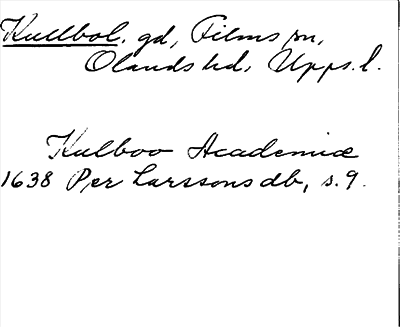 Kullbol. gd, Films sn,
Olands hd, Upps. l.
Kulboo Academiæ
1638 Per Larssons db, s. 9.